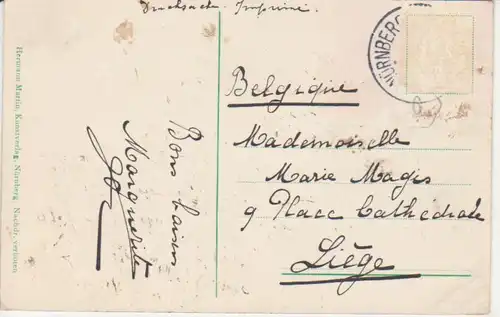 Drucksache. Imprimé.
NÜRNBERG
Belgique
Mademoiselle
Marie Magis
9 Place Cathédrale
Liège
Bons baisers
Marguerite
Hermann Martin, Kunstverlag, Nürnberg Nachdr. verboten